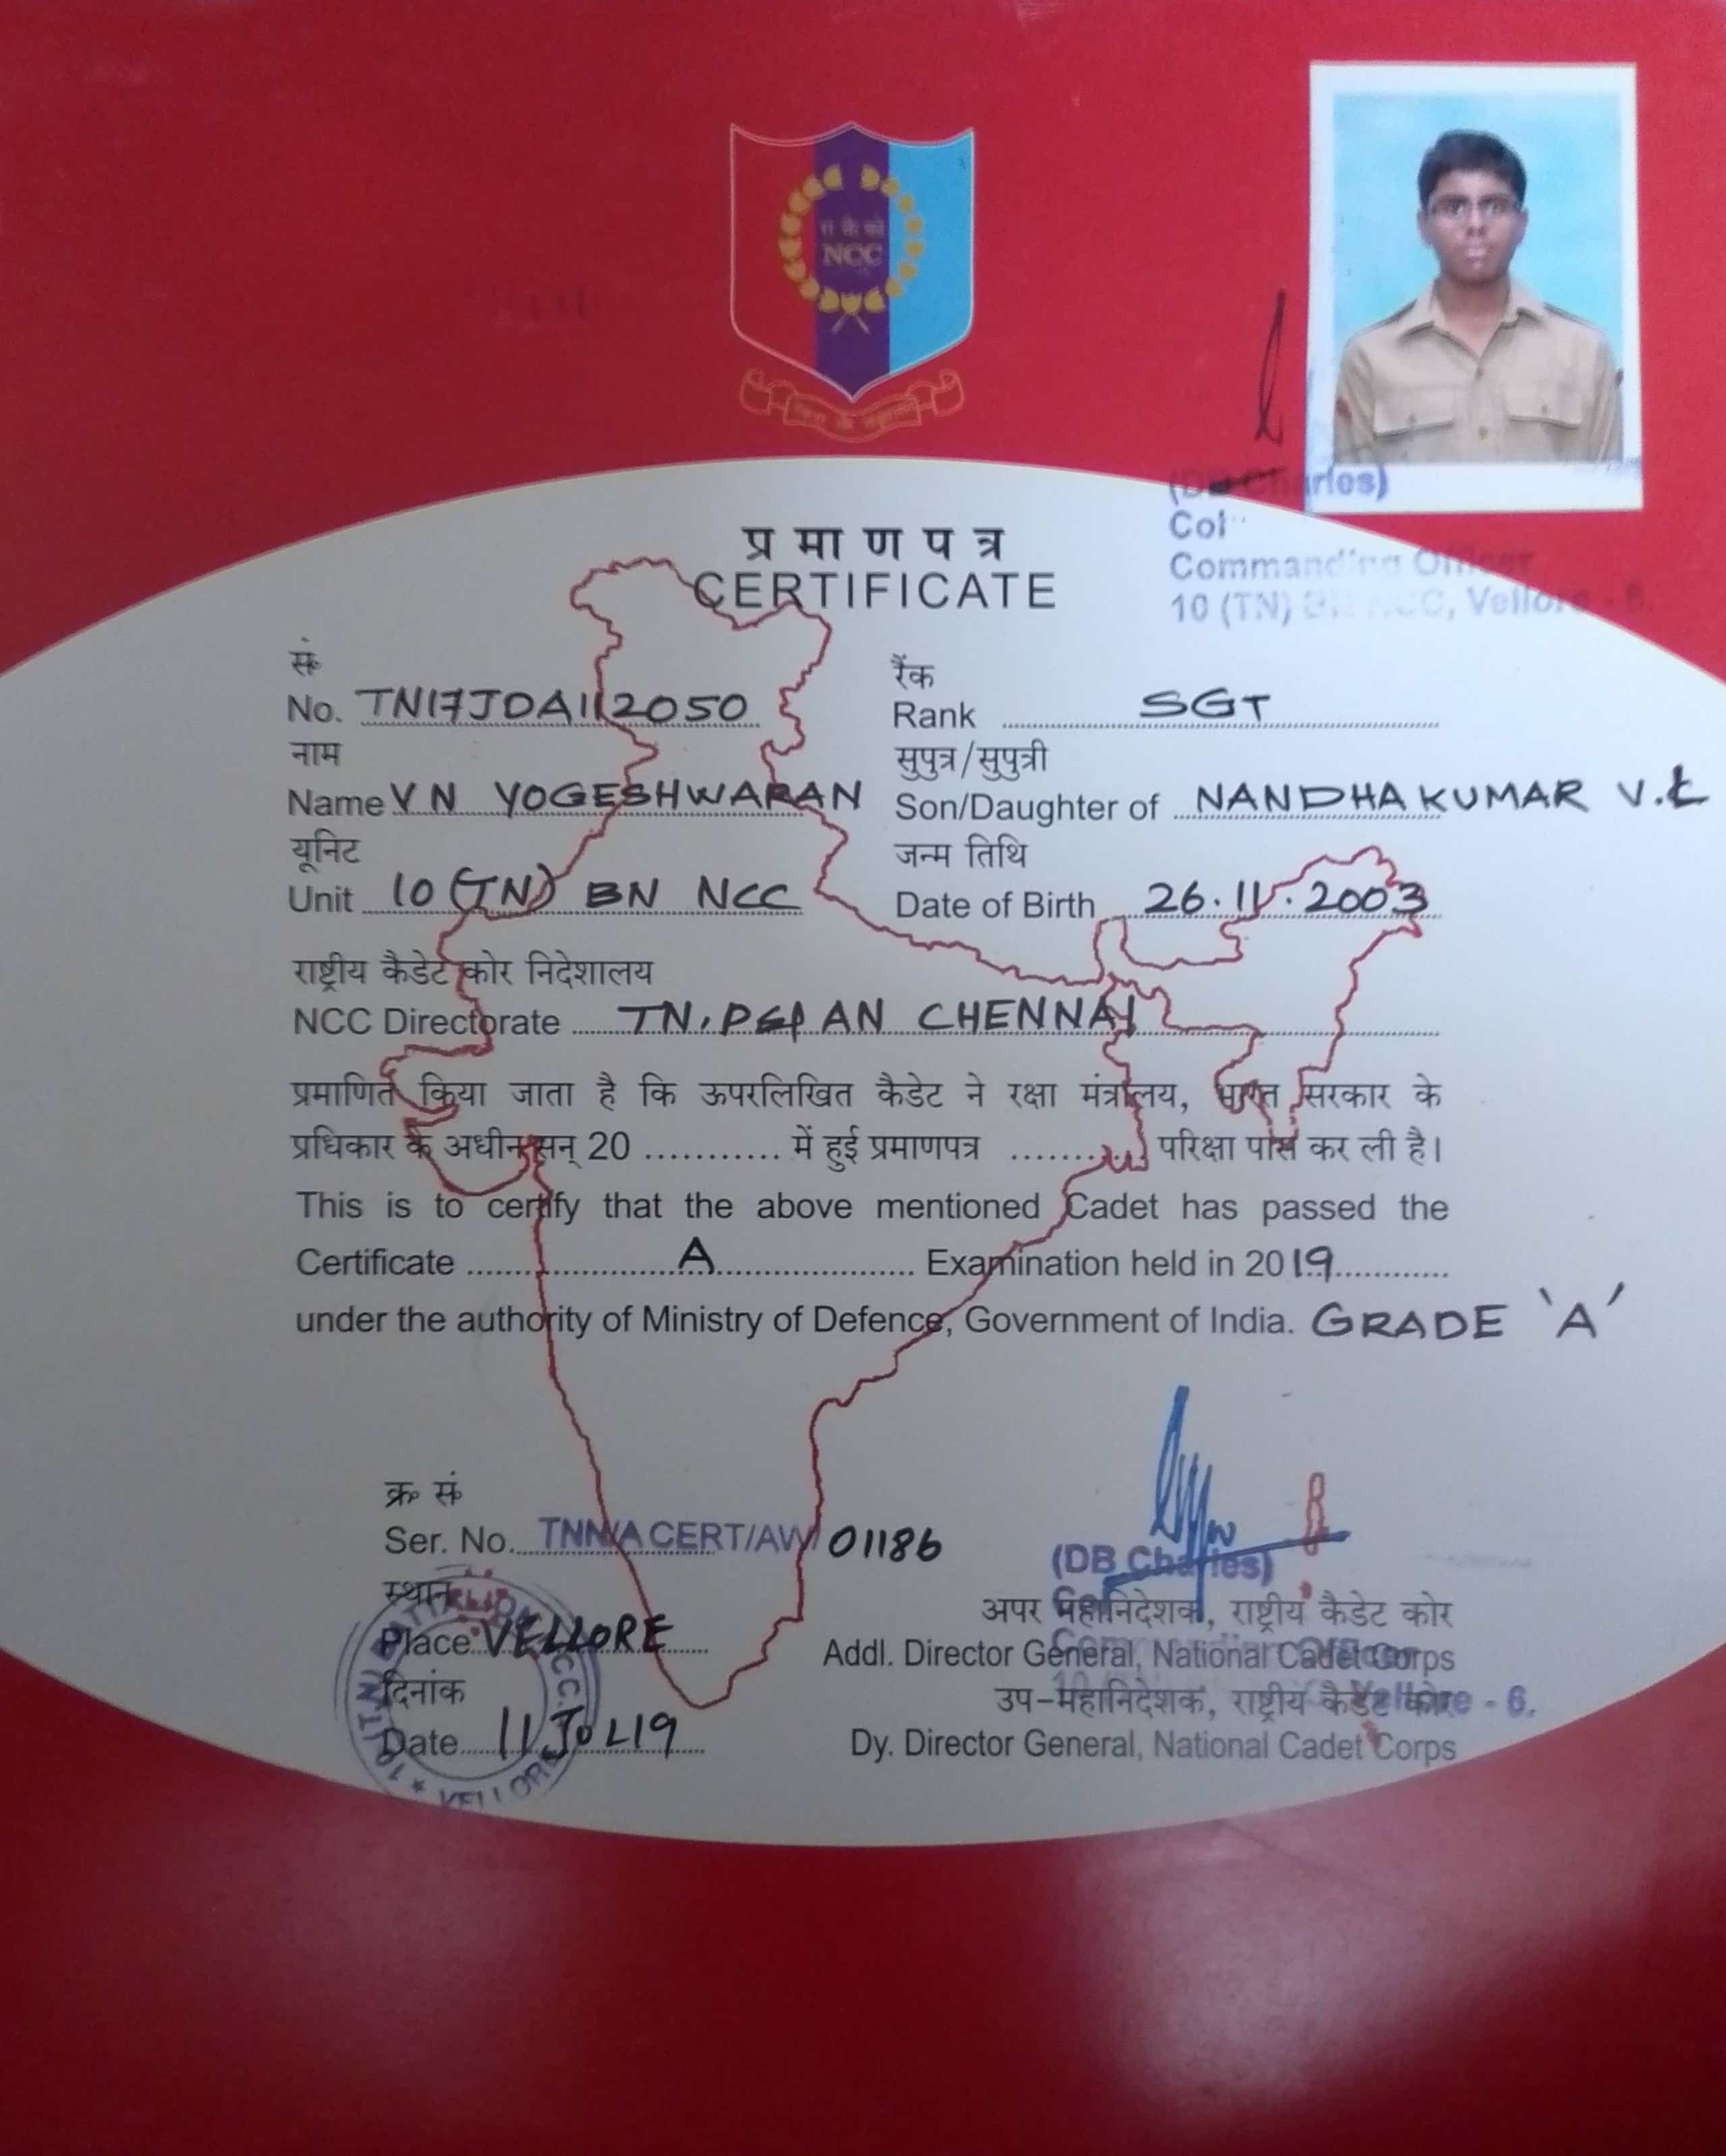 रा कै को
NCC
(DB Charles)
Col
Commanding Officer
10 (TN) BN NCC, Vellore - 6.
प्रमाणपत्र
CERTIFICATE
सं
No. TN17JDA112050
रैंक
Rank SGT
नाम
Name V N YOGESHWARAN
सुपुत्र/सुपुत्री
Son/Daughter of NANDHAKUMAR V.
यूनिट
Unit 10 (TN) BN NCC
जन्म तिथि
Date of Birth 26.11.2003
राष्ट्रीय कैडेट कोर निदेशालय
NCC Directorate TN, P&AN CHENNAI
प्रमाणित किया जाता है कि ऊपरलिखित कैडेट ने रक्षा मंत्रालय, भारत सरकार के
प्रधिकार के अधीन सन् 20 ........... में हुई प्रमाणपत्र ........... परिक्षा पास कर ली है।
This is to certify that the above mentioned Cadet has passed the
Certificate A Examination held in 2019
under the authority of Ministry of Defence, Government of India. GRADE 'A'
क्र सं
Ser. No. TNN/A CERT/AW/ 01186
(DB Charles)
स्थान
Place VELLORE
अपर महानिदेशक, राष्ट्रीय कैडेट कोर
Addl. Director General, National Cadet Corps
दिनांक
Date 11 JUL 19
उप-महानिदेशक, राष्ट्रीय कैडेट कोर
Vellore - 6.
Dy. Director General, National Cadet Corps
VELLORE